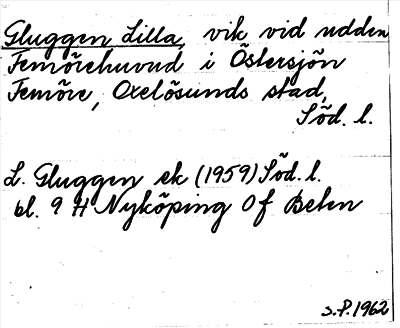 Gluggen Lilla, vik vid udden
Femörehuvud i Östersjön
Femöre, Oxelösunds stad,
Söd. l.
L. Gluggen ek (1959) Söd. l.
bl. 9 H Nyköping Of Beten
S.P. 1962